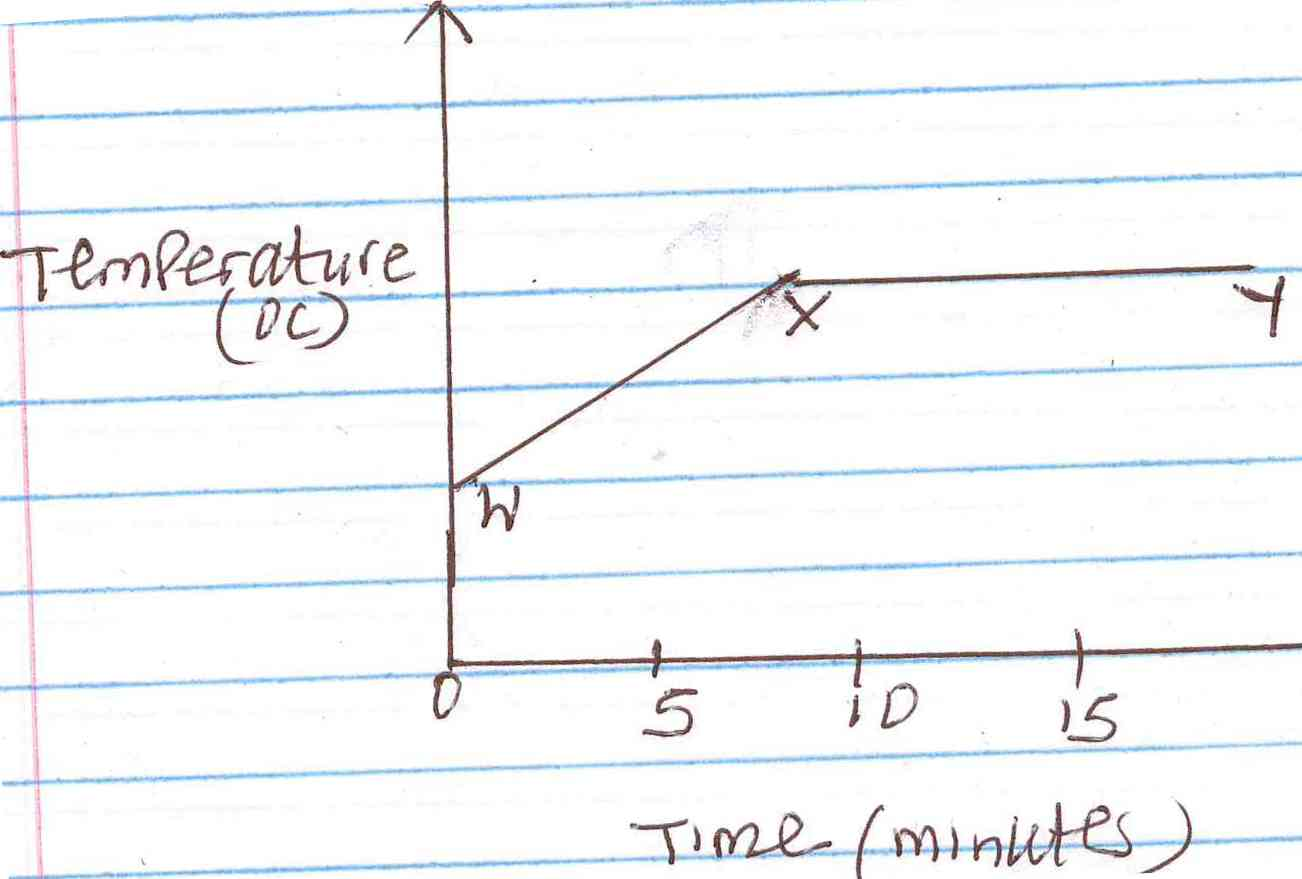 Temperature
(OC)
X
Y
W
0 5 10 15
Time (minutes)